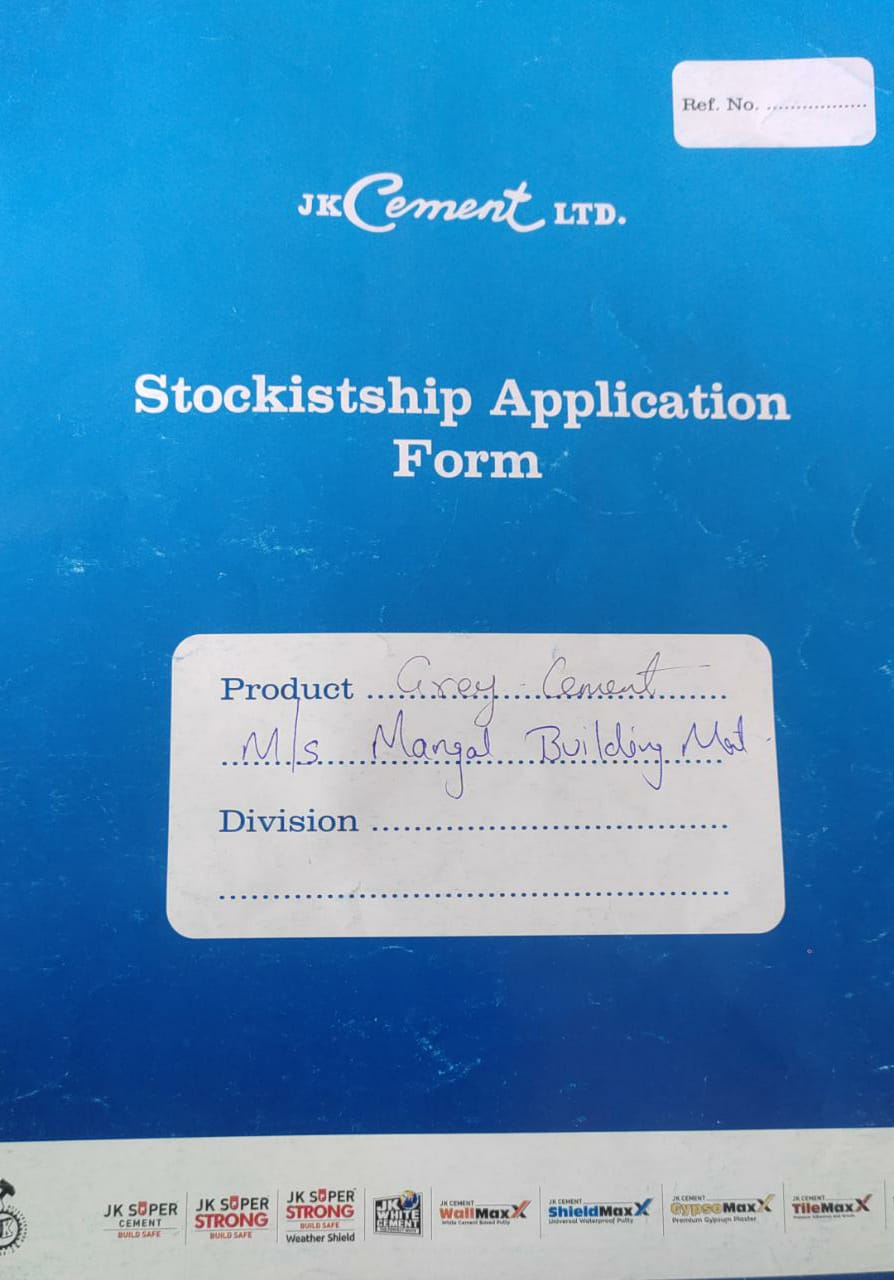 Ref. No. .................
JK Cement LTD.
Stockistship Application
Form
Product ... Grey Cement
M/s Mangal Building Mat
Division ................................................
................................................
JK SUPER
CEMENT
BUILD SAFE
JK SUPER
STRONG
BUILD SAFE
JK SUPER
STRONG
BUILD SAFE
Weather Shield
JK
WHITE
CEMENT
JK CEMENT
WallMaxX
White Cement Based Putty
JK CEMENT
ShieldMaxX
Universal Waterproof Putty
JK CEMENT
GypsoMaxX
Premium Gypsum Plaster
JK CEMENT
TileMaxX